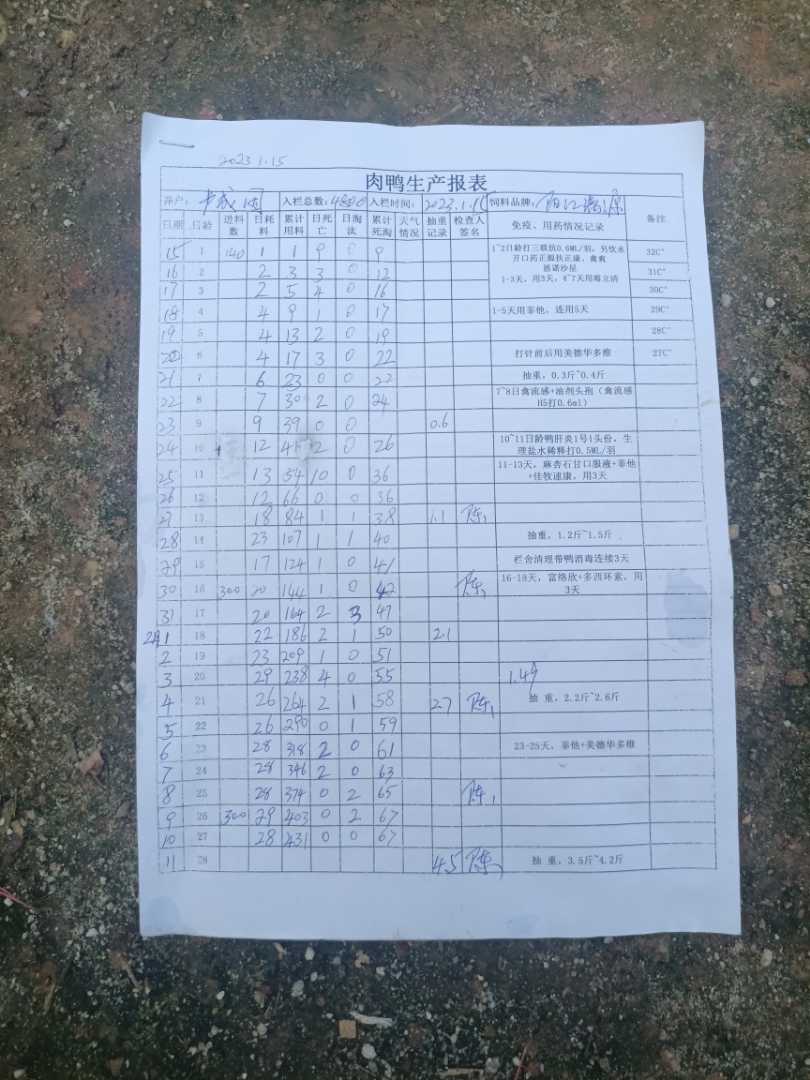 2023.1.15
肉鸭生产报表
养户: 入栏总数:4800 入栏时间:2023.1.15 饲料品牌:
日期 日龄 进料数 日耗料 累计用料 日死亡 日淘汰 累计死淘 天气情况 抽重记录 检查人签名 免疫、用药情况记录 备注
15 1 140 1 1 9 0 9 1~2日龄打三联抗0.6ML/羽，另饮水开口药正服扶正康、禽爽 32C°
16 2 2 3 3 0 12 1-3天，用3天，4~7天用毒立清 31C°
17 3 2 5 4 0 16 30C°
18 4 4 9 1 0 17 1-5天用泰他，连用5天 29C°
19 5 4 13 2 0 19 28C°
20 6 4 17 3 0 22 打针前后用美德华多维 27C°
21 7 6 23 0 0 22 抽重，0.3斤~0.4斤
22 8 7 30 2 0 24 7~8日禽流感+油剂头孢（禽流感H5打0.6ml）
23 9 9 39 0 0 0.6
24 10 12 41 2 0 26 10~11日龄鸭肝炎1号1头份，生理盐水稀释打0.5ML/羽
25 11 13 54 10 0 36 11-13天，麻杏石甘口服液+泰他+佳牧速康，用3天
26 12 12 66 0 0 36
27 13 18 84 1 1 38 1.1 陈
28 14 23 107 1 1 40 抽重，1.2斤~1.5斤
29 15 17 124 1 0 41 栏舍清理带鸭消毒连续3天
30 16 300 20 144 1 0 42 陈 16-18天，富络欣+多西环素，用3天
31 17 20 164 2 3 47
2月1 18 22 186 2 1 50 2.1
2 19 23 209 1 0 51
3 20 29 238 4 0 55 1.49
4 21 26 264 2 1 58 2.7 陈 抽 重，2.2斤~2.6斤
5 22 26 290 0 1 59
6 23 28 318 2 0 61 23-25天，泰他+美德华多维
7 24 28 346 2 0 63
8 25 28 374 0 2 65 陈
9 26 300 29 403 0 2 67
10 27 28 431 0 0 67
11 28 4.5 陈 抽 重，3.5斤~4.2斤